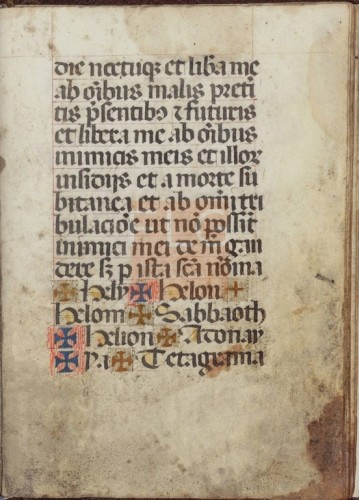 die noctuq; et liba me
ab oībus malis preti
tis p̄sentibꝫ ⁊ futuris
et libera me ab oībus
inimicis meis et illor
insidijs et a morte su
bitanea et ab omī tri
bulacioē ut nō possīt
inimici mei de me gau
dere sꝫ p ista scā nōina
✠ Hely ✠ Helon ✠
Helom ✠ Sabbaoth
✠ Helion ✠ Adonay
✠ ✠ Tetagrama